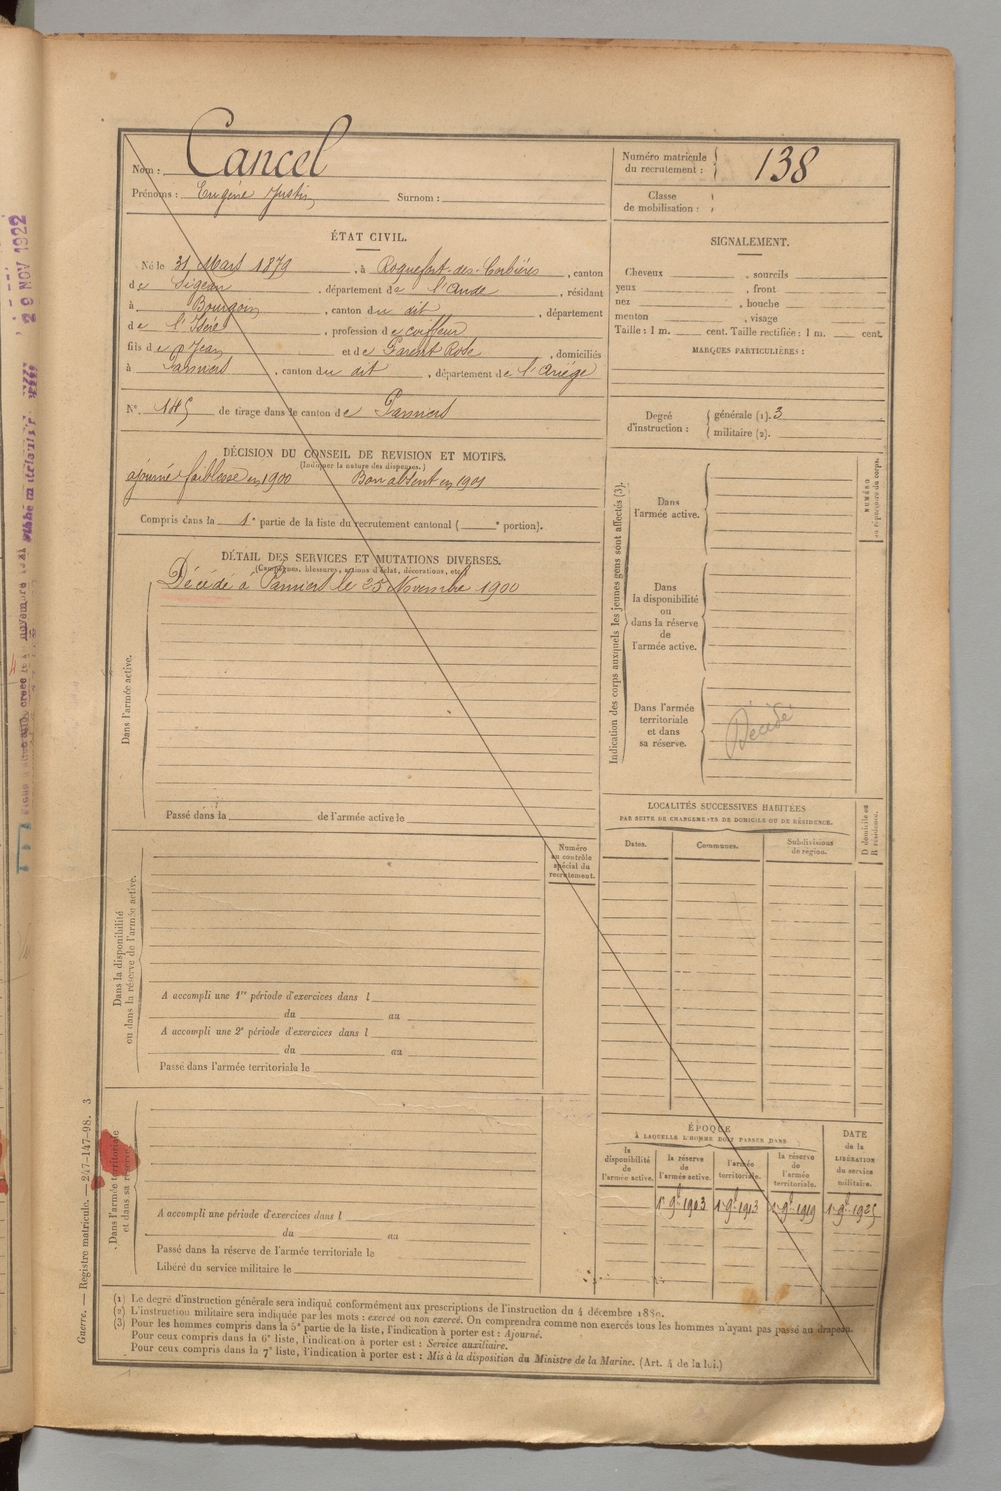 Nom : Cancel
Prénoms : Eugène Justin Surnom :
Numéro matricule du recrutement : 138
Classe de mobilisation :
ÉTAT CIVIL.
Né le 31 Mars 1879, à Roquefort-des-Corbières, canton
de Sigean, département de l'Aude, résidant
à Bourgoin, canton du dit, département
de l'Isère, profession de coiffeur
fils de Jean et de Parent Rose, domiciliés
à Pamiers, canton du dit, département de l'Ariège
N° 145 de tirage dans le canton de Pamiers
SIGNALEMENT.
Cheveux , sourcils
yeux , front
nez , bouche
menton , visage
Taille : 1 m. cent. Taille rectifiée : 1 m. cent.
MARQUES PARTICULIÈRES :
Degré d'instruction : générale (1). 3
militaire (2).
DÉCISION DU CONSEIL DE REVISION ET MOTIFS.
(Indiquer la nature des dispenses.)
ajourné faiblesse en 1900 Bon absent en 1901
Compris dans la 1e partie de la liste du recrutement cantonal ( e portion).
DÉTAIL DES SERVICES ET MUTATIONS DIVERSES.
(Campagnes, blessures, actions d'éclat, décorations, etc.)
Décédé à Pamiers le 25 Novembre 1900
Dans l'armée active.
Passé dans la de l'armée active le
Indication des corps auxquels les jeunes gens sont affectés (3).
Dans l'armée active.
Dans la disponibilité ou dans la réserve de l'armée active.
Dans l'armée territoriale et dans sa réserve.
Décédé
NUMÉRO au répertoire du corps.
LOCALITÉS SUCCESSIVES HABITÉES
PAR SUITE DE CHANGEMENTS DE DOMICILE OU DE RÉSIDENCE.
Dates.
Communes.
Subdivisions de région.
D domicile ou R résidence.
Numéro au contrôle spécial du recrutement.
Dans la disponibilité ou dans la réserve de l'armée active.
A accompli une 1re période d'exercices dans l
du au
A accompli une 2e période d'exercices dans l
du au
Passé dans l'armée territoriale le
Dans l'armée territoriale et dans sa réserve.
A accompli une période d'exercices dans l
du au
Passé dans la réserve de l'armée territoriale le
Libéré du service militaire le
ÉPOQUE
À LAQUELLE L'HOMME DOIT PASSER DANS
la disponibilité de l'armée active.
la réserve de l'armée active.
l'armée territoriale.
la réserve de l'armée territoriale.
DATE de la LIBÉRATION du service militaire.
1er 9bre 1903 1er 9bre 1913 1er 9bre 1919 1er 9bre 1925
(1) Le degré d'instruction générale sera indiqué conformément aux prescriptions de l'instruction du 4 décembre 1889.
(2) L'instruction militaire sera indiquée par les mots : exercé ou non exercé. On comprendra comme non exercés tous les hommes n'ayant pas passé au drapeau.
(3) Pour les hommes compris dans la 5e partie de la liste, l'indication à porter est : Ajourné.
Pour ceux compris dans la 6e liste, l'indication à porter est : Service auxiliaire.
Pour ceux compris dans la 7e liste, l'indication à porter est : Mis à la disposition du Ministre de la Marine. (Art. 4 de la loi.)
Guerre. — Registre matricule. — 247-147-98. 3
29 NOV 1922